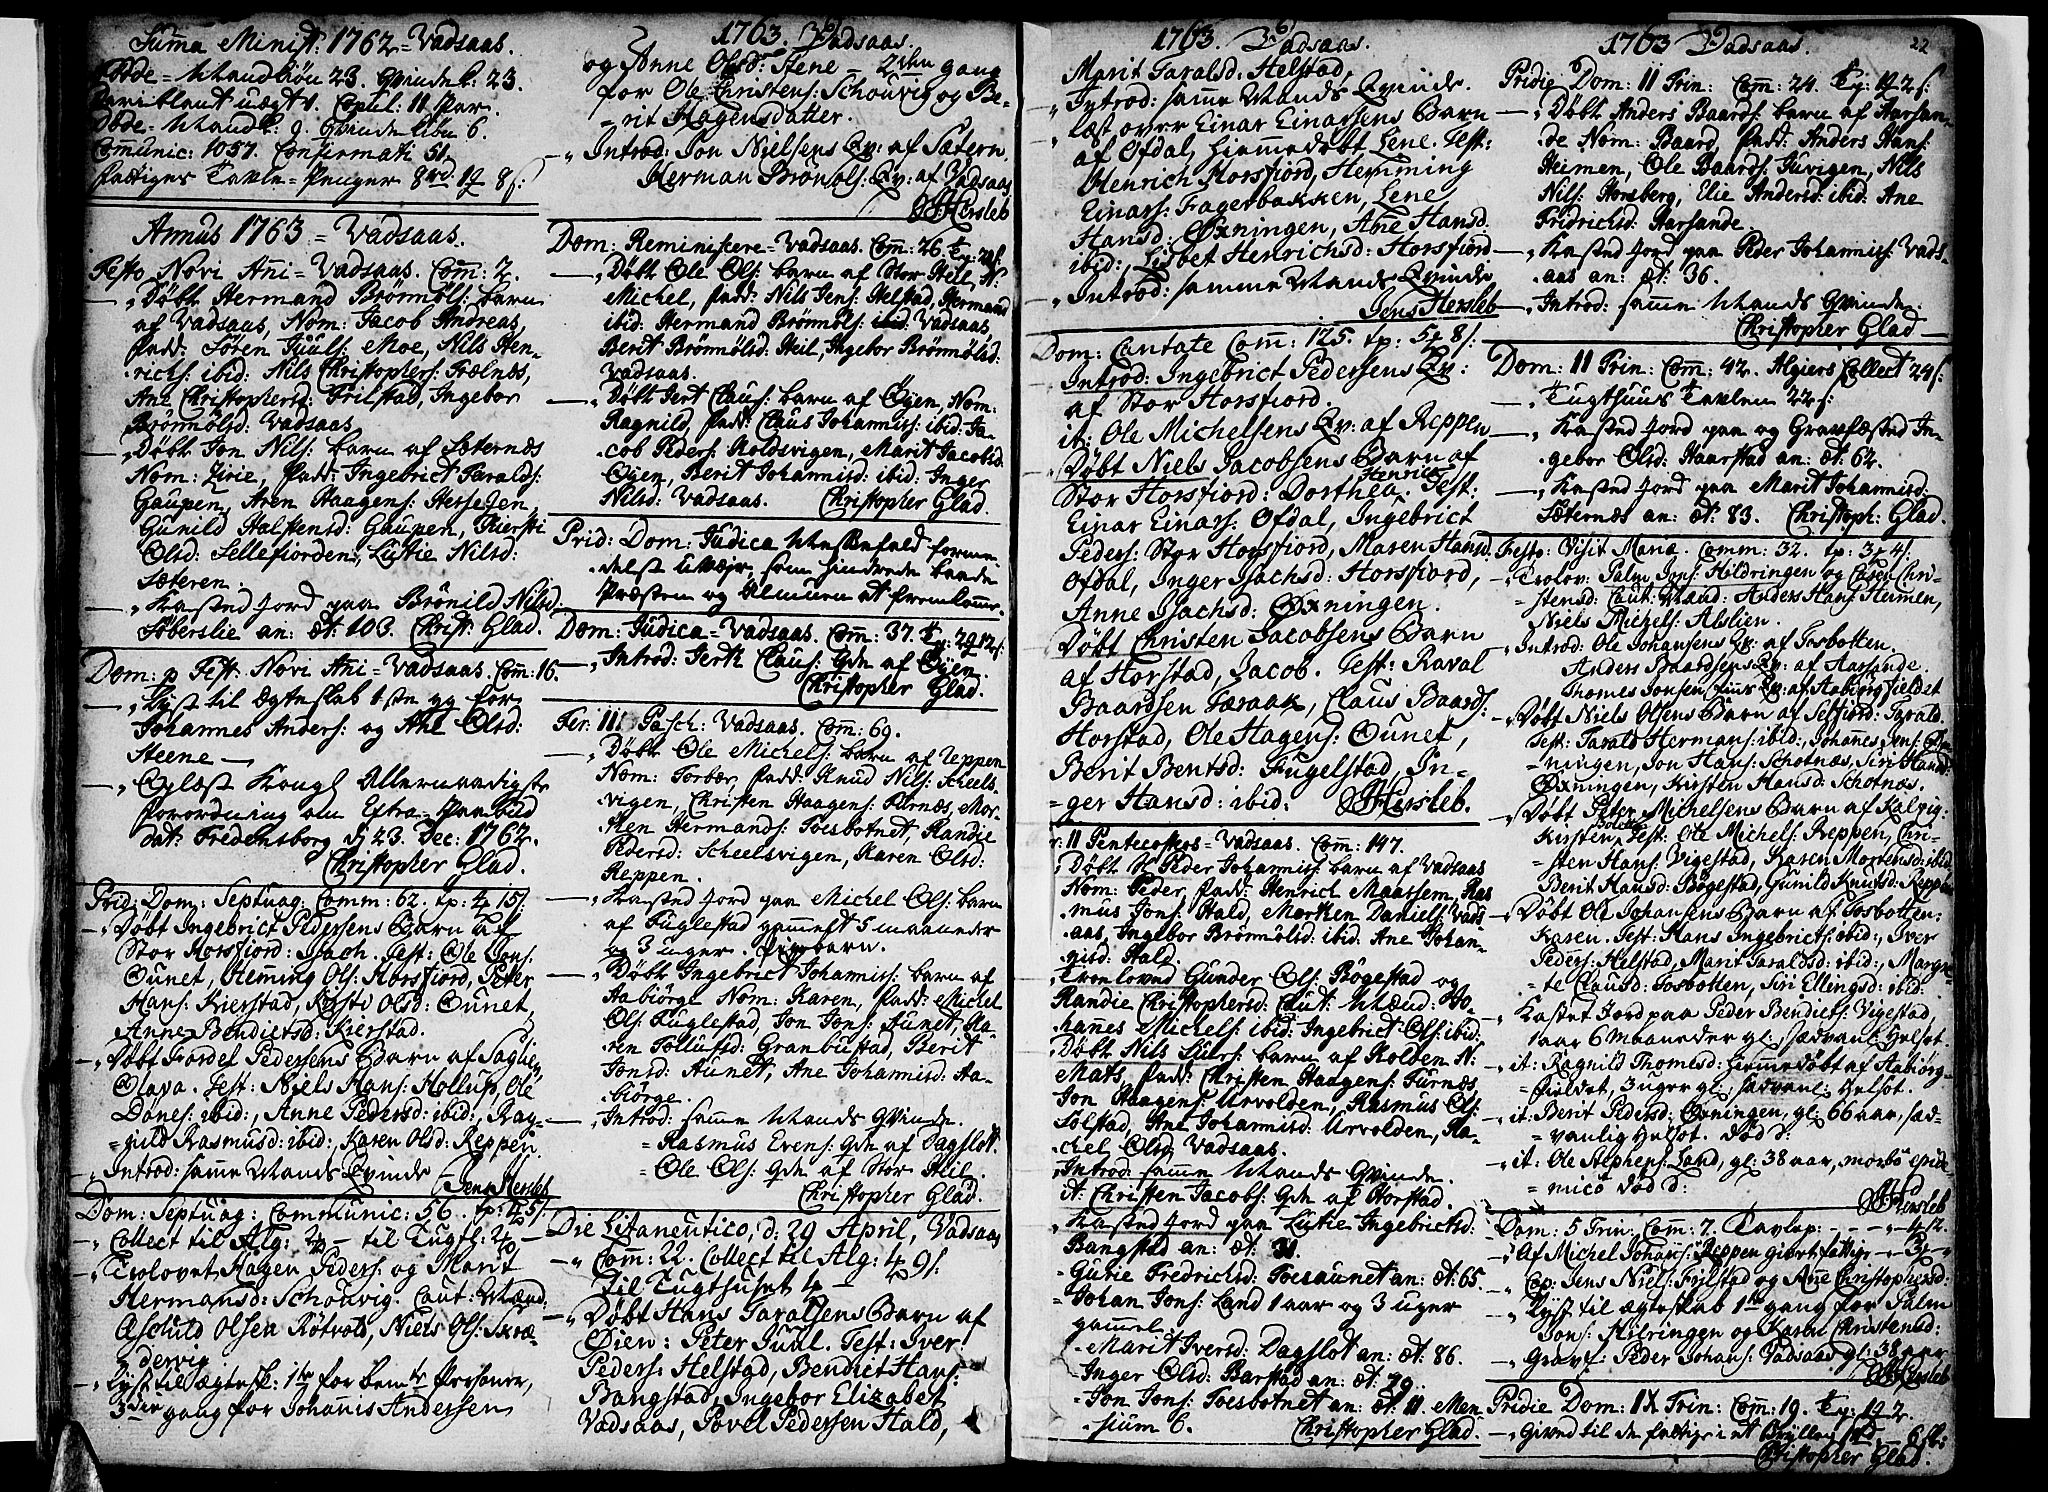 Suma Minist: 1762 = Vadsaas.
Fødde = Mandkiön 23. Qvindek: 23.
Copul: 11 Par.
Døde = Mandk: 9. Qvinde kiön 6.
Comunic: 1057. Confirmati 51.
Fattiges Tavle = Penger 8 rd 1 8 s:
Annus 1763 = Vadsaas.
Festo Novi Ani = Vadsaas. Com: 2.
Døbt Hermand Brönnöls: barn
af Vadsaas, Nom: Jacob Andreas,
fadd: Sören Juuls: Moe, Nils Hen-
richs: ibid: Nils Christophers: Trælnæs,
Ane Christophersd: Frilstad, Ingebor
Brönnölsd: Vadsaas.
Døbt Jon Nils: barn af Sæternæs
Nom: Zirie, fadd: Ingebrict Taralds:
Gaupen, Aren Haagens:
Gunild Halstensd: Gaupen, Kiersti
Olsd: Sellefiorden, Lutie Nilsd:
Sæteren.
Kasted Jord paa Brönild Nilsd
Söberslie an: æt: 103. Christ: Glad.
Dom: p Fest: Novi Ani = Vadsaas. Com: 16.
Lyst til ægteskab 1ste gg for
Johannes Anders: og Ane Olsd:
Steene
Oplæst Kongl Allernaadigste
forordning om Extra-Paabud
dat: Fredensborg d 23 Dec: 1762.
Christopher Glad.
Prid: Dom: Septuag: Comm: 62. tp: 4 15 s
Døbt Ingebrict Pedersens Barn af
Stor Horsfiord: Isach. Test: Ole Jons:
Ounet, Hemming Ols: Horsfiord, Peter
Hans: Kierstad, Kirsti Olsd: Ounet,
Anne Bendictsd: Kierstad.
Døbt Tordel Pedersens Barn af Saglien,
Olava. Test: Niels Hans: Hollup, Ole
Danes: ibid:, Anne Pedersd: ibid:, Rag-
= nild Rasmusd: ibid:, Karen Olsd: Reppen.
Introd: samme Mands Qvinde
Jens Hersleb
Dom: Septuag: Communic: 56. tp: 4 5 s
Collect til Alg: 24 - til Tugth: 24
Trolovet Hagen Peders: og Marit
Hermansd: Schouvig. Caut: Mænd
Aschild Olsen Rötvold, Niels Ols: Skræ-
dervig
Lyst til ægtesk: 1te for bemte Personer,
3die gang for Johannis Andersen
1763. Vadsaas.
og Anne Olsd: Stene - 2den gang
for Ole Christens: Schouvig og Be-
= rit Hagensdatter.
Introd: Jon Nielsens Qv: af Sætern
Herman Brönöls: Qv: af Vadsaas
JHersleb
Dom: Reminiscere = Vadsaas. Com: 26.
Døbt Ole Ols: barn af Stor Heil, N:
Michel, fadd: Nils Jens: Helstad, Hermand
ibid: Hermand Brönnöls: Vadsaas
Berit Brönnölsd: Heil, Ingebor Brönnölsd:
Vadsaas.
Døbt Jert Claus: barn af Öyen, Nom:
Ragnild, fadd: Claus Johannis: ibid: Ja-
cob Peders: Koldsvigen, Marit Jacobsd:
Öyen, Berit Johannisd: ibid: Inger
Nilsd: Vadsaas. Christopher Glad.
Prid: Dom: Judica Messefald forme-
delst Uvejr, som hindrede baade
Præsten og Almuen at fremkomme.
Dom: Judica = Vadsaas. Com: 37.
Introd: Jerk Claus: Qvn af Öyen.
Christopher Glad.
Fer: III Pasch: Vadsaas. Com: 69.
Døbt Ole Michels: barn af Reppen
Nom: Torber, fadd: Knud Nils: Scheels-
vigen, Christen Haagens: Furnæs, Mor-
ten Hermands: Tosbotnet, Randie
Pedersd: Scheelsvigen, Karen Olsd:
Reppen.
Kasted Jord paa Michel Ols: barn
af Fuglestad gammelt 5 maaneder
og 3 uger. Pigebarn.
Døbt Ingebrict Johannis: barn af
Aabiörge Nom: Karen, fadd: Michel
Ols: Fuglestad, Jon Jons: Aunet, Ka-
ren Tollufsd: Granbustad, Berit
Jonsd: Aunet, Ane Johannisd: Aa-
biörge.
Introd: samme Mands Qvinde.
= Rasmus Evens: Qvn af Dagslot.
= Ole Ols: Qvn af Stor Heil.
Christopher Glad.
Die Litaneutico, d: 29 April, Vadsaas
Comm: 22. Collect til Alg: 4 9 s.
Til Tugthuset 4 -
Døbt Hans Taraldsens Barn af
Øien: Peter Juul. Test: Iver
Peders: Helstad, Bendict Hans:
Bangstad, Ingebor Elizabet
Vadsaas, Povel Pedersen Hald,
1763. Vadsaas.
Marit Taralsd: Helstad,
Introd: samme Mands Qvinde.
Læst over Einar Einarsens Barn
af Ofdal, hiemmedöbt Lene. Test:
Henrich Horsfiord, Hemming
Einars: Fagerbakken, Lene
Hansd: Øxningen, Ane Hansd:
ibid:, Lisbet Henrichsd: Horsfiord
Introd: samme Mands Qvinde
Jens Hersleb
Dom: Cantate Com: 125. tp: 5 8 s.
Introd: Ingebrict Pedersens Qv:
af Stor Horsfiord.
it: Ole Michelsens Qv: af Reppen
Døbt Niels Jacobsens Barn af
Stor Horsfiord: Dorthea Henrica. Test:
Einar Einars: Ofdal, Ingebrict
Peders: Stor Horsfiord, Maren Hansd:
Ofdal, Inger Isachsd: Horsfiord,
Anne Isachsd: Øxningen.
Døbt Christen Jacobsens Barn
af Horstad, Jacob. Test: Raval
Baardsen Færaak, Claus Baards:
Horstad, Ole Hagens: Ounet,
Berit Bentsd: Fugelstad, In-
= ger Hansd: ibid: JHersleb.
II Pentecostes = Vadsaas. Com: 147.
Døbt Peder Johannis: barn af Vadsaas
Nom: Peder, fadd: Henrich Maassem, Ras-
mus Jons: Hald, Morten Daniels: Vads-
aas, Ingebor Brönnölsd: ibid: Ane Johan-
nisd: Hald.
Troloved Gunder Ols: Bögestad og
Randie Christophersd: Caut: Mænd: Jo-
hannes Michels: ibid: Ingebrict Ols: ibid:
Døbt Nils Siurs: barn af Kolden N:
Mats, fadd: Christen Haagens: Furnæs,
Jon Haagens: Urvolden, Rasmus Ols:
Solstad, Ane Johannisd: Urvolden, Ra-
chel Olsd: Vadsaas.
Introd: samme Mands Qvinde.
it: Christen Jacobs: Qvn af Horstad.
Kasted Jord paa Lutie Ingebrictsd:
Bangstad an: æt: 31.
Gurie Fredrichsd: Toesaunet an: æt: 65.
Johan Jons: Land 1 aar og 3 uger
gammel.
Marit Iversd: Dagslot an: æt: 86.
Inger Olsd: Barstad an: æt: 79.
Jon Jons: Toesbotnet an: æt: 11. Men-
sium 6. Christopher Glad.
1763 Vadsaas. 22
Pridie Dom: II Trin: Com: 24.
Døbt Anders Baards: barn af Aarsan-
de Nom: Baard, fadd: Anders Hans:
Heimen, Ole Baards: Turigen, Nils
Nils: Horsberg, Elie Andersd: ibid: Ane
Fridrichsd: Aarsande.
Kasted Jord paa Peder Johannis: Vads-
aas an: æt: 36.
Introd: samme Mands Qvinde.
Christopher Glad
Dom: II Trin: Com: 42. Algiers Collect 24 s:
Tugthuus Tavlen 22 s:
Kasted Jord paa og Gravfæsted In-
gebor Olsd: Haarstad an: æt: 62.
Kasted Jord paa Marit Johannisd:
Sæternæs an: æt: 83. Christoph: Glad.
Festo: Visit Mariæ. Comm: 32. tp: 3 4 s.
Trolov: Palm Jons: Hildringen og Caren Chri-
= stensd: Caut: Mænd: Anders Hans: Heimen,
Niels Michels: Alslien.
Introd: Ole Johansens Qv: af Tosbotten.
Anders Baardsens Qv: af Aarsande.
Thomes Jonsen fins Qv: af Aabiörgfieldet
Døbt Niels Olsens Barn af Selfiord: Tarald.
Test: Tarald Hermans: ibid:, Johannes Jens: Øx-
= ningen, Jon Hans: Schotnæs, Siri Hansd:
Øxningen, Kirsten Hansd: Schotnæs.
Døbt Peter Michelsens Barn af Kalvig:
Kirsten Bolette, Test: Ole Michels: Reppen, Chri-
= sten Hans: Vigestad, Karen Mortensd: ibid
Berit Hansd: Bögestad, Gunild Knutsd: Reppen
Døbt Ole Johansens Barn af Tosbotten:
Karen. Test: Hans Ingebricts: ibid:, Iver
Peders: Helstad, Marit Taraldsd: ibid:, Margre-
= te Clausd: Tosbotten, Siri Ellingsd: ibid:
Kastet Jord paa Peder Bendicts: Vigestad,
1 aar 6 Maaneder gl: sædvanl: Helsot.
it: Ragnild Thomesd: hiemmedöbt af Aabiörg-
= fieldet, 3 uger gl: sædvanl: Helsot.
it: Berit Pedersd: Øxningen, gl: 66 aar, sæd-
= vanlig Helsot. død:
it: Ole Stephens: Land, gl: 38 aar, morbo epide-
= mico død:
JHersleb
Dom: 5 Trin: Com: 7. Tavlep:
Af Michel Johans: Reppen givet fattige
Cop: Jens Niels: Frilstad og Ane Christophersd:
Lyst til ægteskab 1te gang for Palm
Jons: Hildringen og Karen Christensd:
Gravf: Peder Johans: Vadsaas gl: 38 aar
JHersleb
Pridie Dom: IX Trin: Com: 19.
Gived til de fattige i et Bryllup
Christopher Glad.